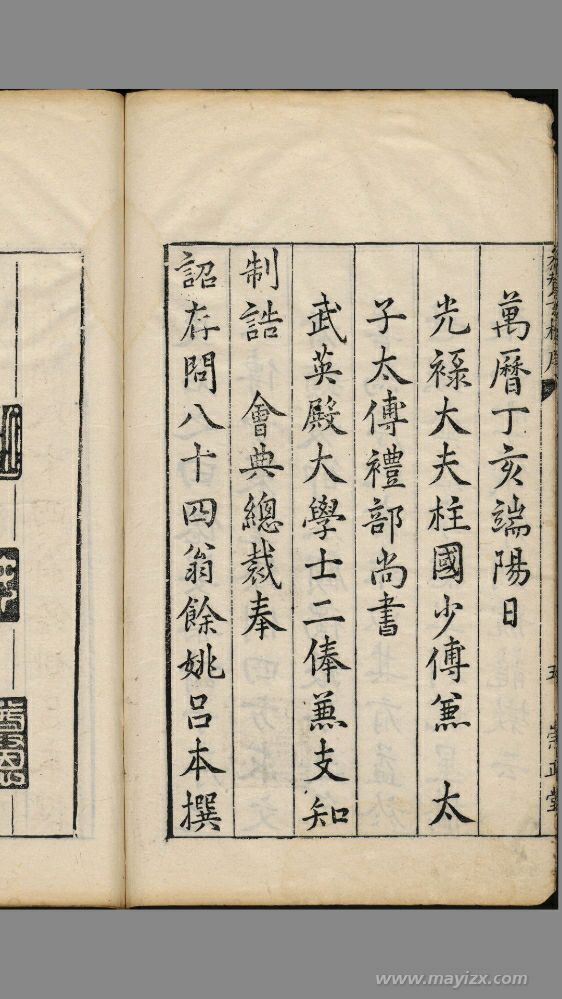 萬曆丁亥端陽日
光祿大夫柱國少傅兼　太
子太傅禮部尚書
武英殿大學士二俸兼支知
制誥　會典總裁奉
詔存問八十四翁餘姚呂本撰
崇正堂
www.mayizx.com